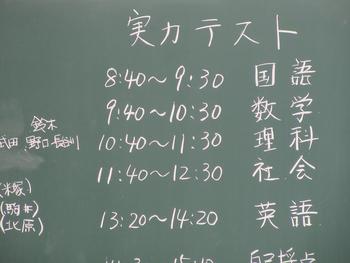 実力テスト
8:40〜9:30 国語
9:40〜10:30 数学
鈴木
武田 野口 長谷川 10:40〜11:30 理科
11:40〜12:30 社会
(米塚)
(駒井)
(北原) 13:20〜14:20 英語
自己採点